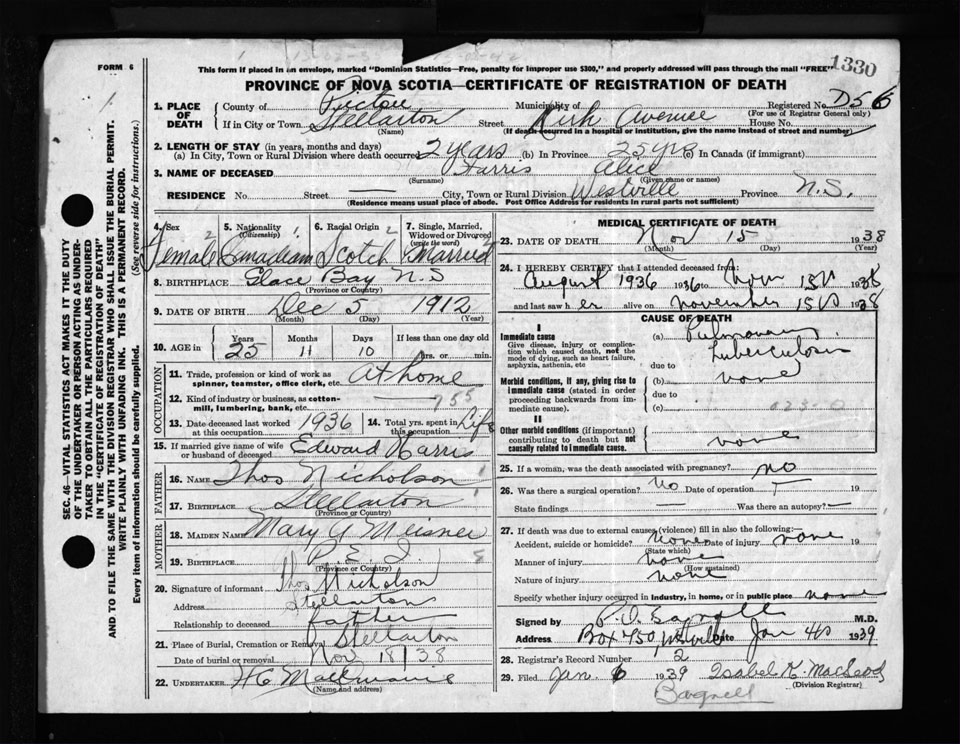 FORM 6
This form if placed in an envelope, marked "Dominion Statistics—Free, penalty for improper use $300," and properly addressed will pass through the mail "FREE" 1330
PROVINCE OF NOVA SCOTIA—CERTIFICATE OF REGISTRATION OF DEATH
1. PLACE OF DEATH County of Pictou Municipality of Registered No. D56
(For use of Registrar General only)
If in City or Town Stellarton Street Kirk Avenue House No.
(Name) (If death occurred in a hospital or institution, give the name instead of street and number)
2. LENGTH OF STAY (in years, months and days)
(a) In City, Town or Rural Division where death occurred 2 years (b) In Province 25 yrs (c) In Canada (if immigrant)
3. NAME OF DECEASED Harris Alice
(Surname) (Given name or names)
RESIDENCE No. Street City, Town or Rural Division Westville Province N.S.
(Residence means usual place of abode. Post Office Address for residents in rural parts not sufficient)
4. Sex 5. Nationality (Citizenship) 6. Racial Origin 7. Single, Married, Widowed or Divorced (write the word)
Female Canadian Scotch Married
8. BIRTHPLACE Glace Bay N.S
(Province or Country)
9. DATE OF BIRTH Dec 5 1912
(Month) (Day) (Year)
10. AGE in Years Months Days If less than one day old
25 11 10 hrs. or min.
OCCUPATION
11. Trade, profession or kind of work as spinner, teamster, office clerk, etc. At home
12. Kind of industry or business, as cotton-mill, lumbering, bank, etc. 755
13. Date deceased last worked at this occupation 1936 14. Total yrs. spent in this occupation Life
15. If married give name of wife or husband of deceased Edward Harris
FATHER
16. NAME Thos Nicholson
17. BIRTHPLACE Stellarton
(Province or Country)
MOTHER
18. MAIDEN NAME Mary A Meisner
19. BIRTHPLACE P.E.I
(Province or Country)
20. Signature of informant Thos Nicholson
Address Stellarton
Relationship to deceased father
21. Place of Burial, Cremation or Removal Stellarton
Date of burial or removal Nov 18/38
22. UNDERTAKER
(Name and address)
MEDICAL CERTIFICATE OF DEATH
23. DATE OF DEATH Nov 15 1938
(Month) (Day) (Year)
24. I HEREBY CERTIFY that I attended deceased from:
August 1936 1936 to Nov 15th 1938
and last saw her alive on November 15th 1938
CAUSE OF DEATH
I
Immediate cause
Give disease, injury or complication which caused death, not the mode of dying, such as heart failure, asphyxia, asthenia, etc
(a) Pulmonary tuberculosis
due to
Morbid conditions, if any, giving rise to immediate cause (stated in order proceeding backwards from immediate cause).
(b) none
due to
(c)
II
Other morbid conditions (if important) contributing to death but not causally related to immediate cause. none
25. If a woman, was the death associated with pregnancy? no
26. Was there a surgical operation? No Date of operation 19
State findings Was there an autopsy?
27. If death was due to external causes (violence) fill in also the following:—
Accident, suicide or homicide? none Date of injury none 19
(State which)
Manner of injury none
(How sustained)
Nature of injury none
Specify whether injury occurred in industry, in home, or in public place none
Signed by M.D.
Address Box 750 Westville Date Jan 4th 1939
28. Registrar's Record Number 2
29. Filed Jan. 6 1939 Isabel K. MacLeod
(Division Registrar)
Bagnell
SEC. 46—VITAL STATISTICS ACT MAKES IT THE DUTY OF THE UNDERTAKER OR PERSON ACTING AS UNDERTAKER TO OBTAIN ALL THE PARTICULARS REQUIRED IN THE "CERTIFICATE OF REGISTRATION OF DEATH" AND TO FILE THE SAME WITH THE DIVISION REGISTRAR WHO SHALL ISSUE THE BURIAL PERMIT.
WRITE PLAINLY WITH UNFADING INK. THIS IS A PERMANENT RECORD.
Every item of information should be carefully supplied. (See reverse side for instructions.)